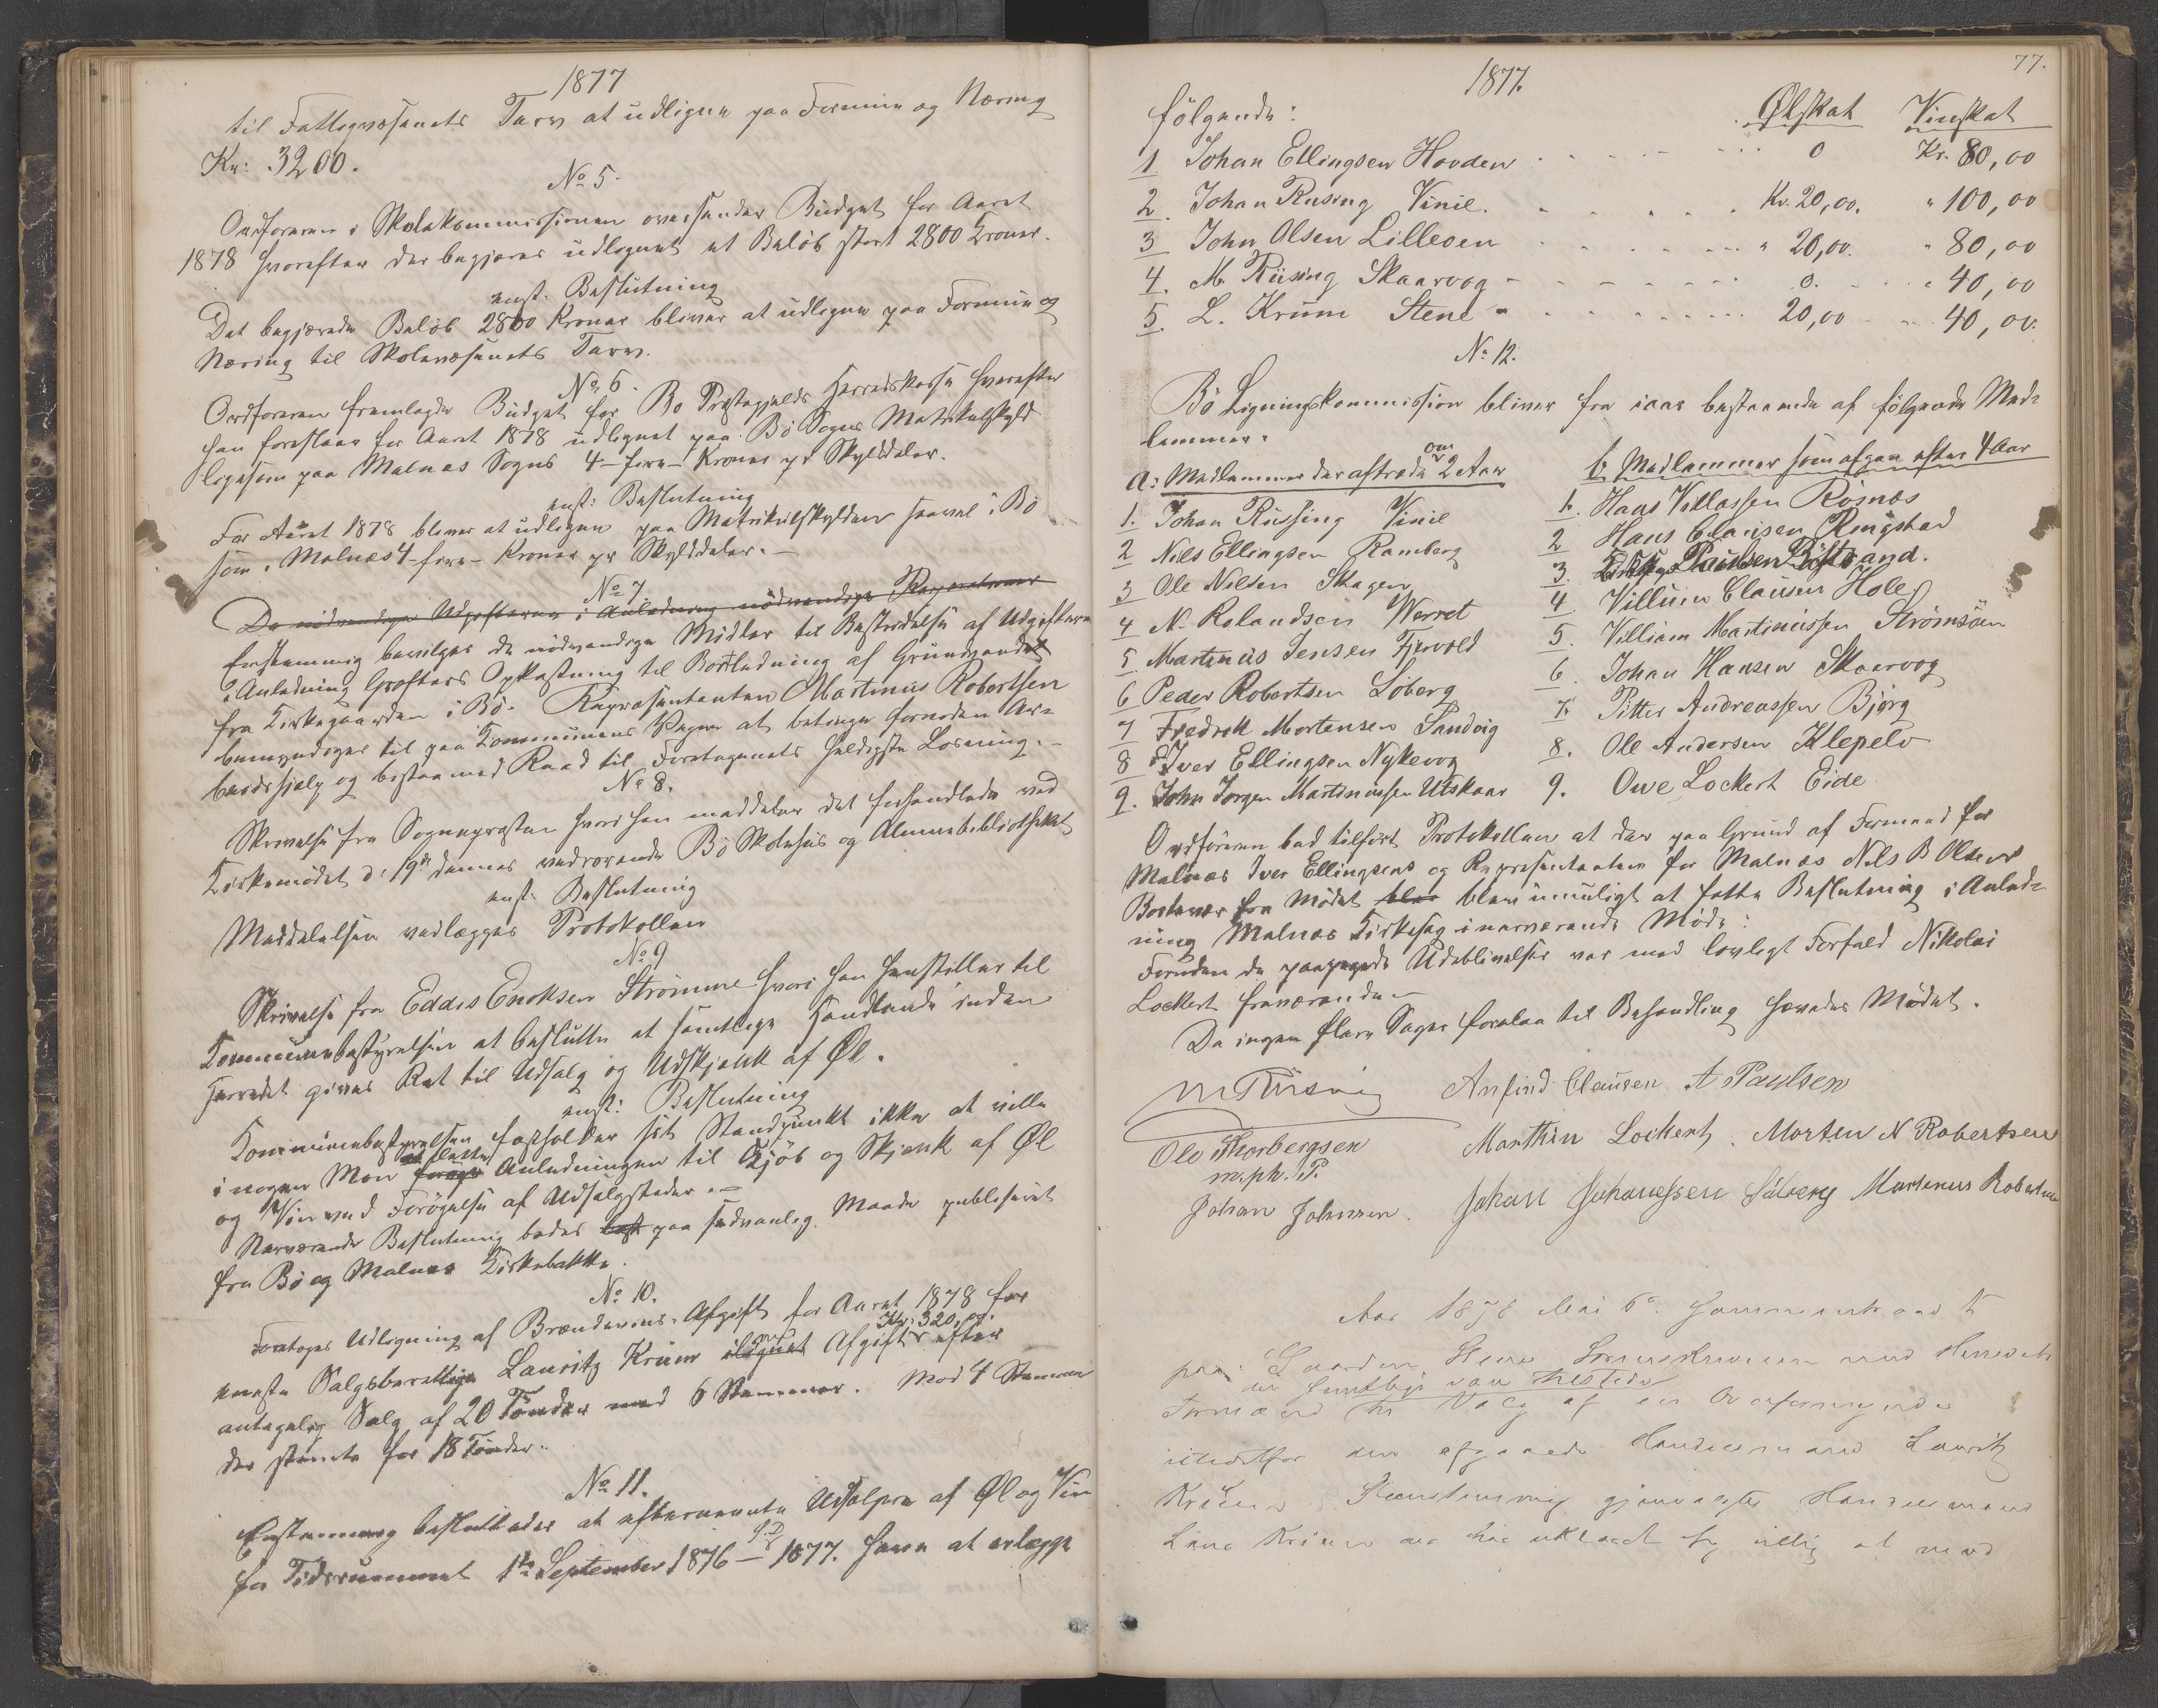 1877
til Fattigvæsenets Tarv at udligne paa Formue og Næring
Kr: 3200.
No 5.
Ordføreren i Skolekommissionen oversender Budget for Aaret
1878 hvorefter der begjæres udlignet et Beløb stort 2800 Kroner.
enst. Beslutning
Det begjærede Beløb 2800 Kroner bliver at udligne paa Formue og
Næring til Skolevæsenets Tarv.
No 6.
Ordføreren fremlagde Budget for Bø Præstegjelds Herredskasse hvorefter
han foreslaar for Aaret 1878 udlignet paa Bø Sogns Matrikulskyld
ligesom paa Malnes Sogns 4-fire-Kroner pr Skylddaler.
enst: Beslutning
For Aaret 1878 bliver at udligne paa Matrikulskylden saavel i Bø
som i Malnæs 4-fire-Kroner pr Skylddaler.-
No 7.
De nødvendige Udgifterne i Anledning nødvendige Reparationer
Enstemmig bevilges de nødvendige Midler til Bestridelse af Udgifterne
i Anledning Grøfters Opkastning til Bortledning af Grundvandet
fra Kirkegaarden i Bø. Repræsentanten Martinus Robertsen
bemyndiges til paa Kommunens Vegne at betinge fornøden Ar-
beidshjælp og bistaa med Raad til Foretagenets heldigste Løsning.-
No 8.
Skrivelse fra Sognepræsten hvori han meddeler det forhandlede ved
Kirkemødet d: 19de dennes vedrørende Bø Skolehus og Almuebibliothekt
enst: Beslutning
Meddelelsen vedlægges Protokollen
No 9
Skrivelse fra Eddis Enoksen Strømme hvori han henstiller til
Kommunebestyrelsen at beslutte at samtlige Handlende inden
Herredet gives Ret til Udsalg og Udskjænk af Øl.
enst: Beslutning
Kommunebestyrelsen fastholder sit Standpunkt ikke at ville
i nogen Mon lette Anledningen til Kjøb og Skjenk af Øl
og Vin ved Forøgelse af Udsalgsteder.-
Nærværende Beslutning bedes paa sædvanlig Maade publiseret
fra Bø og Malnes Kirkebakke.
No 10.
Foretoges Udligning af Brændevins-Afgift for Aaret 1878 for
Kr: 320,00.
eneste Salgsberettige Lauritz Krüm Afgift efter
antagelig Salg af 20 Tønder med 6 Stemmer. Mod 4 Stemmer
der stemte for 18 Tønder.
No 11.
Enstemmig besluttedes at efternævnte Udsalgere af Øl og Vin
for Tidsrummet 1ste September 1876 - 1877. have at erlægge
77.
1877.
følgende:
Ølskat Vinskat
1 Johan Ellingsen Hovden 0 Kr. 80,00
2. Johan Rusing Vinie. Kr. 20,00. " 100,00
3 John Olsen Lilleøen " 20,00. " 80,00
4. M Rüsing Skaarvog - 0. " 40,00
5. L. Krüm Stene 20,00 40,00.
No 12.
Bø Ligningskommission bliver fra iaar bestaaende af følgende Med-
lemmer.
om
a: Medlemmer der aftræde 2 Aar
1. Johan Rüssing Vinie
2 Nils Ellingsen Ramberg
3 Ole Nilsen Skagen
4 N. Rolandsen Werret
5 Martinus Jensen Fjervold
6 Peder Robertsen Løberg
7 Fredrek Mortensen Sandvig
8 Iver Ellingsen Nykevog
9. John Jørgen Martinussen Utskaar
b. Medlemmer som afgaa efter 4 Aar
1. Haas Villassen Røsnæs
2 Hans Clausen Ringstad
3. Paulsen
4 Villum Clausen Hole
5. Villiam Martinussen Strømsøen
6. Johan Hansen Skaarvog
7. Pitter Andreassen Bjørg
8. Ole Andersen Klepelv
9. Owe Lockert Eide
Ordføreren bad tilført Protokollen at der paa Grund af Formand for
Malnæs Iver Ellingsens og Repræsentanten for Malnæs Nils B Olsens
Bortevær fra Mødet blev umuligt at fatte Beslutning i Anled-
ning Malnæs Kirkesag i nærværende Møde:
Foruden de paapegede Udeblivelser var med lovligt Forfald Nikolai
Lockert fraværende.-
Da ingen flere Sager forelaa til Behandling hævedes Mødet.
M Rüsing Anfind Clausen A Paulsen
Ole Thorbergsen Marthin Lockert. Morten N Robertsen
m. ph. P.
Johan Johnsen. Johan Johanessen Søberg Martinus Robertsen
Aar 1878 Mai 6. sammentraadte
paa Gaarden Stene Formandskommissionen med Herredets
Formænd til Valg af en Overformynder
istedetfor den afgaaede Handelsmand Lauritz
Krüm. Eenstemmig gjenvalgtes Handelsmand
Krüm